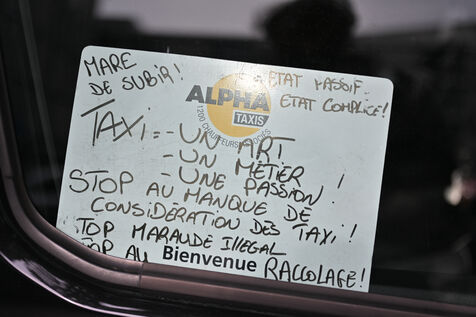 MARE
DE SUBIR!
ETAT PASSIF
ETAT COMPLICE!
ALPHA
TAXIS
1200 CHAUFFEURS ASSOCIÉS
TAXI = - UN ART
- UN MÉTIER
- UNE PASSION!
STOP AU MANQUE DE
CONSIDÉRATION DES TAXI!
TOP MARAUDE ILLEGAL
TOP AU Bienvenue RACCOLAGE!